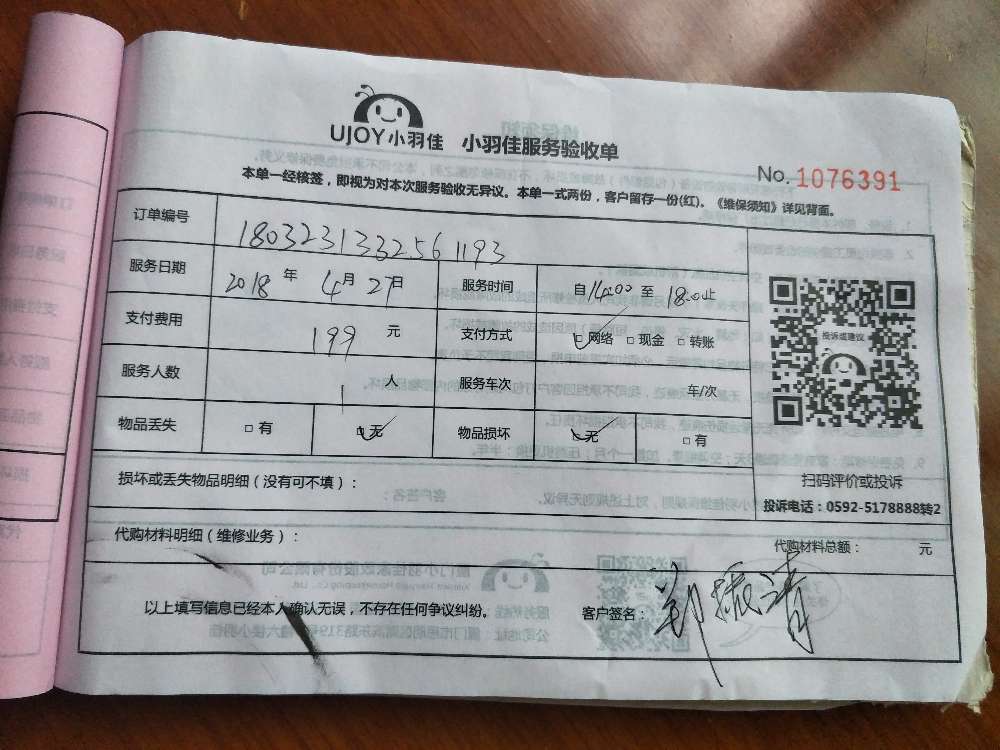 UJOY小羽佳 小羽佳服务验收单
No. 1076391
本单一经核签，即视为对本次服务验收无异议。本单一式两份，客户留存一份(红)。《维保须知》详见背面。
订单编号 1803231332561193
服务日期 2018 年 4 月 27 日 服务时间 自 14:00 至 18:00 止
支付费用 199 元 支付方式 网络 □ 现金 □ 转账
服务人数 1 人 服务车次 车/次
物品丢失 □ 有 无 物品损坏 无 □ 有
投诉或建议
扫码评价或投诉
投诉电话：0592-5178888转2
损坏或丢失物品明细（没有可不填）：
代购材料明细（维修业务）：
代购材料总额： 元
以上填写信息已经本人确认无误，不存在任何争议纠纷。 客户签名：